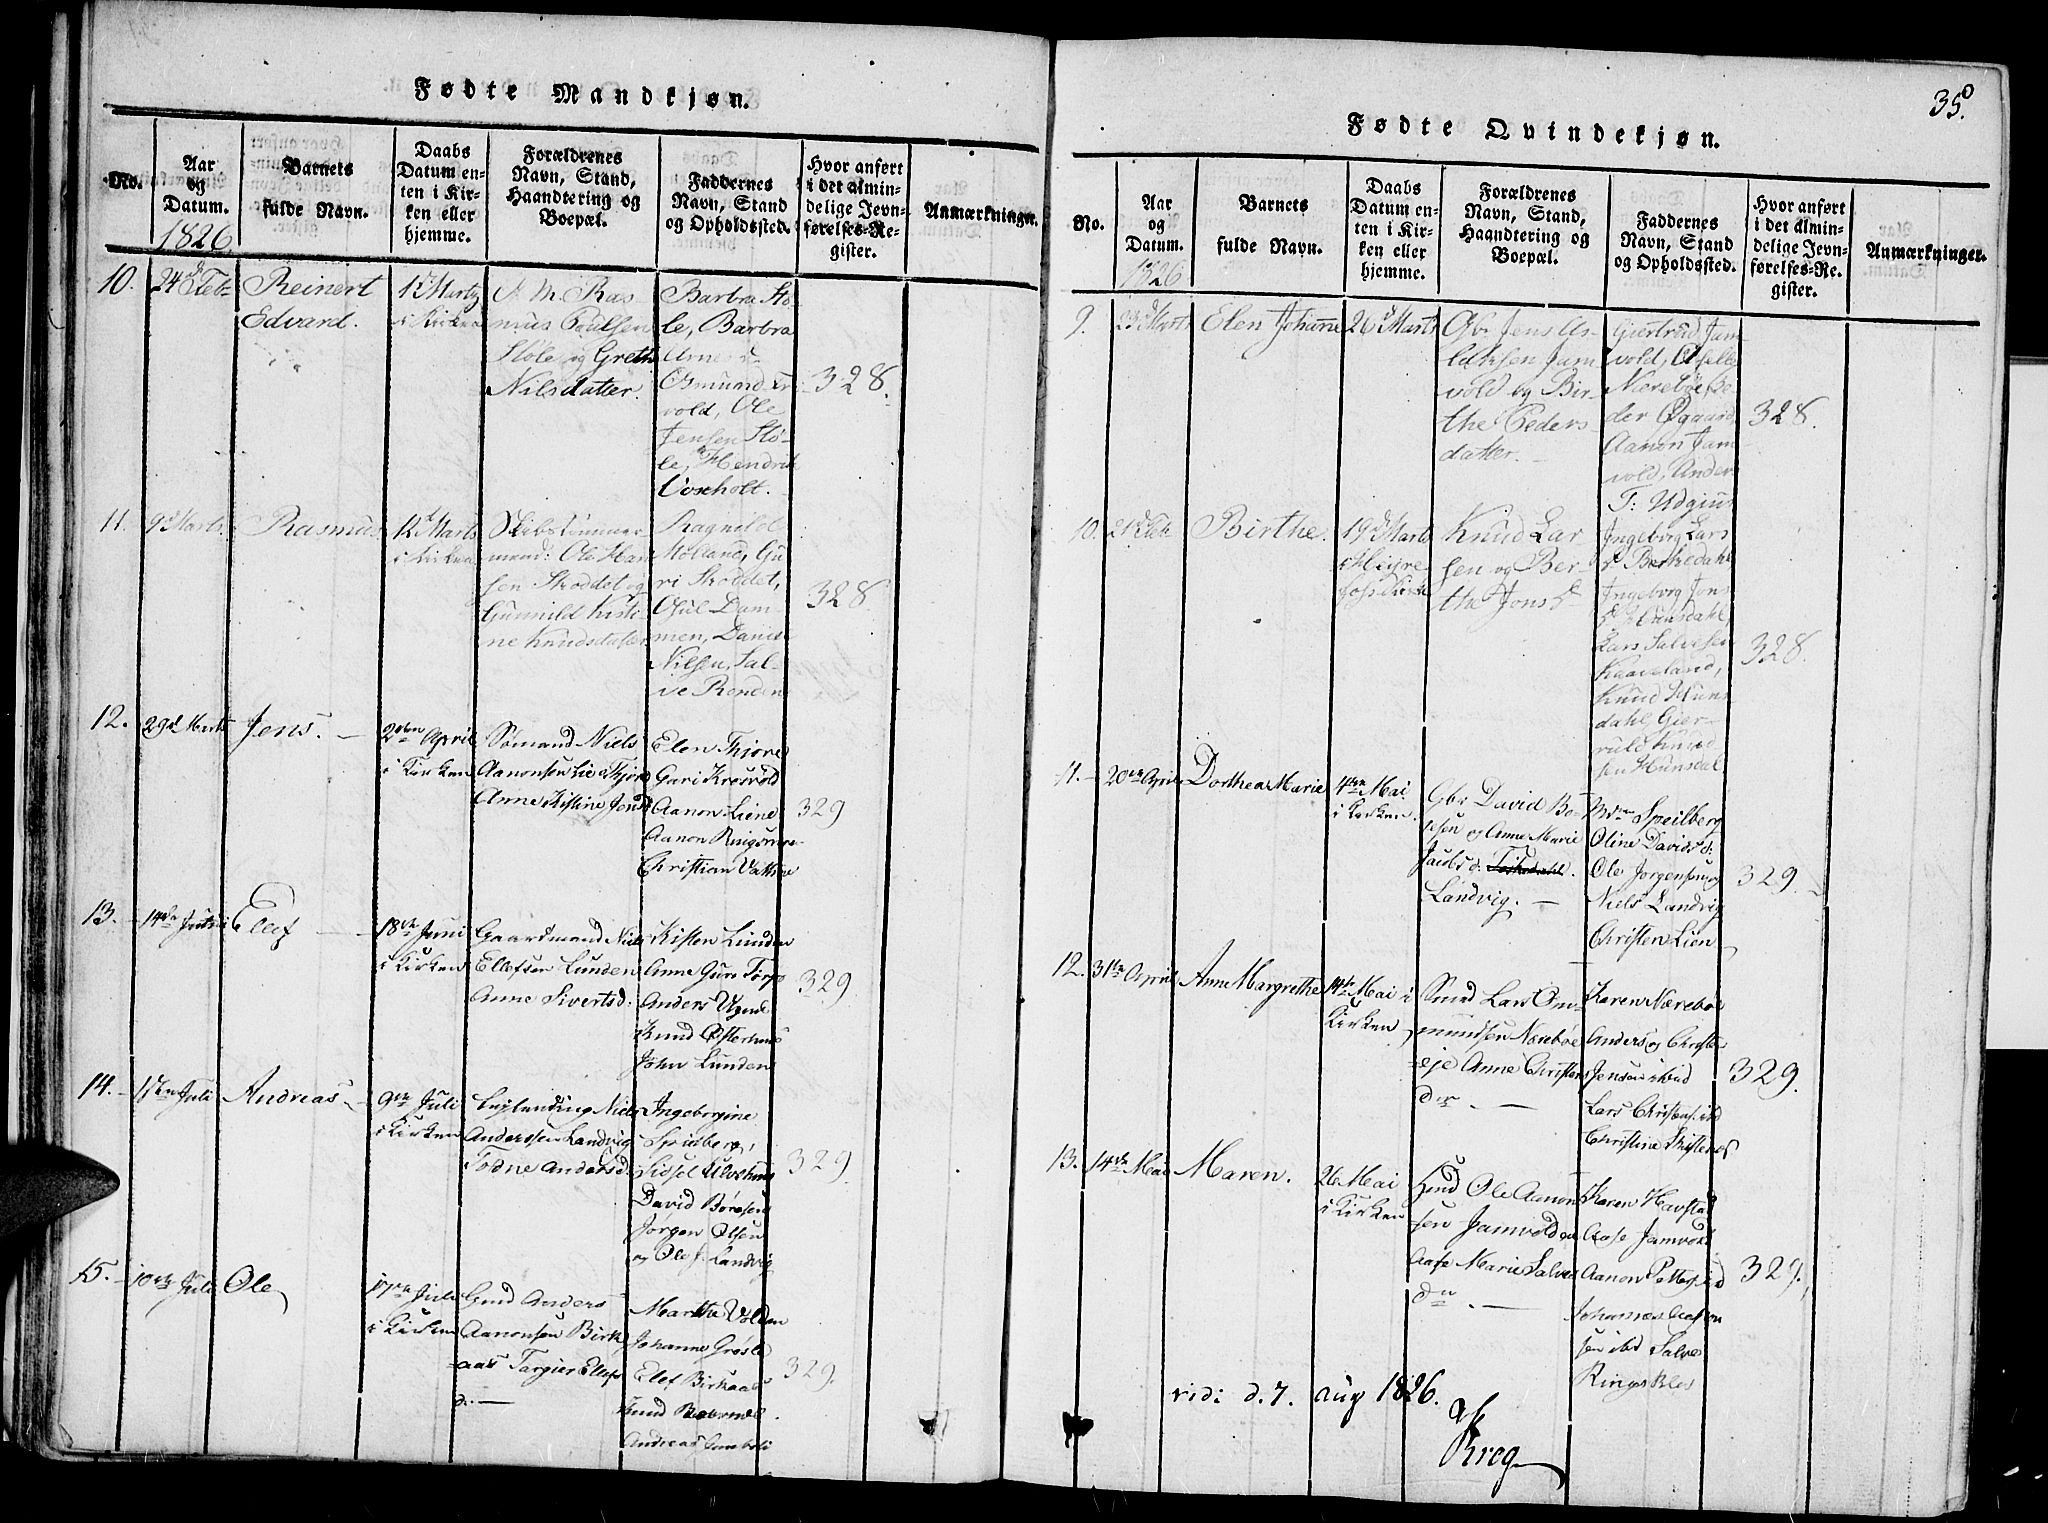 Fødte Mandkjøn.
No.
Aar
og
Datum.
1826
Barnets
fulde Navn.
Daabs
Datum en-
ten i Kir-
ken eller
hjemme.
Forældrenes
Navn, Stand,
Haandtering og
Boepæl.
Faddernes
Navn, Stand
og Opholdssted.
Hvor anført
i det almin-
delige Jevn-
førelses-Re-
gister.
Anmærkninger.
10.
24 Feb
Reinert
Edvard.
12 Marts
i Kirken
S. M. Ras
mus Poulsen
Støle og Greth
Nilsdatter.
Barbra Stø-
le, Barbra
Osmund
vold, Ole
Jensen Stø-
le, Hendrik
Voscholt.
328.
11.
9d Marts.
Rasmus
12d Marts
i Kirken
Skibstømmer
mand: Ole Han
sen Skoddet og
Gunnild Kisti
ne Knudsdatter
Ragnild
Molland, Gu
ri Skoddet,
Oluf Dam
men, Daniel
Nilsen, Sal-
ve Renden
328.
12.
29d Marts
Jens.
2den April
i Kirken
Sømand Niels
Aanonsen Lie
Anne Kistine Jensd
Elen Thjore
Guri Kresvold
Aanon Liene
Aanon
Christian
329
13.
14de Juni
Elef
18de Juni
i Kirken
Gaardmand Niels
Ellefsen Lunden
Anne Sivertsd.
Kisten Lunden
Anne Gure Torp
Anders
Knud Østerhuus
John Lunden
329.
14.
Juli
Andreas
9de Juli
i Kirken
Niels
Anderssen Landvig
Andersd.
Ingeborgine
Speilberg,
Sidsel
David Børesen
Jørgen Olsen
og Ole J. Landvig
329.
15.
10de Juli
Ole
17de Juli
i Kirken
Gmd Anders
Aanonsen Birk
aas Targier Ellefs
d.
Marthe Volden
Johanne
Elef Birkaas
Knud
Andreas
329.
35.
Fødte Qvindekjøn.
No.
Aar
og
Datum.
1826
Barnets
fulde Navn.
Daabs
Datum en-
ten i Kir-
ken eller
hjemme.
Forældrenes
Navn, Stand,
Haandtering og
Boepæl.
Faddernes
Navn, Stand
og Opholdssted.
Hvor anført
i det almin-
delige Jevn-
førelses-Re-
gister.
Anmærkninger.
9.
23d Marts
Elen Johanne
26d Marts
Gbr Jens As-
laksen Jam
vold og Bir-
the Peders
datter.
Giertrud Jam
vold,
Nærebøe, Pe-
der Øgaard,
Aanon Jam
vold, Anders
T: Udgiuf
328.
10.
21d Feb
Birthe.
19d Marts
i Heyre
foss Kirke
Knud Lar
sen og Ber-
the Jons d
Ingeborg Lars
d Berkedahl
Ingeborg Jons
d Hunsdahl,
Lars Salvesen
Kaaveland,
Knud Huns
dahl, Gier-
ruld Knud
sen Hunsdal
328.
11.
20de April
Dorthea Marie
4de Mai
i Kirken.
Gbr David Bø-
resen og Anne Marie
Jacobs d.
Landvig.
Speilberg
Oline Davids d:
Ole Jørgensen og
Niels Landvig
Christen Lien
329.
12.
31te April
Anne Margrethe
14de Mai i
Kirken
Smed Lars Om-
mundsen Nærebøe
eje Anne Christens
dr.
Karen Nærebøe
Anders og Christe
Jensen ibid
Lars Christens. ibd
Christine
329.
13.
14de Mai
Maren.
26 Mai
i Kirken
Ole Aanon
sen Jamvold
Aase Marie Salves
dr.
Karen Havstad
Aase Jamvold
Aanon
Johannes
sen ibd Salve
329.
vidi d. 7. aug 1826.
Krog